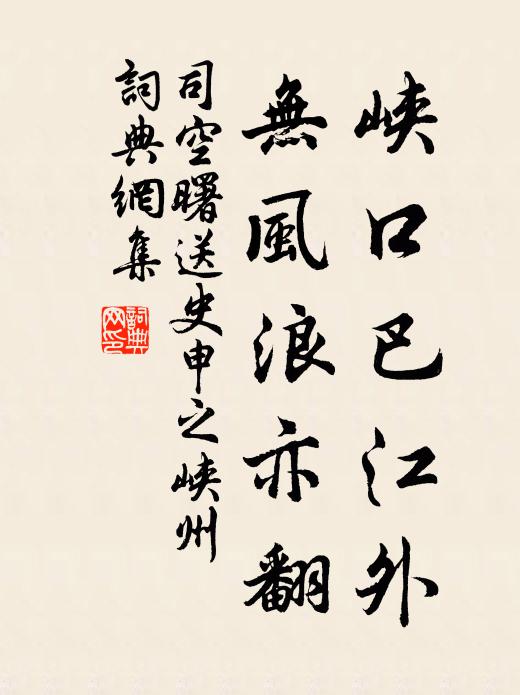 峽口巴江外
無風浪亦翻
司空曙送史申之峽州
詞典網集
詞典
网印